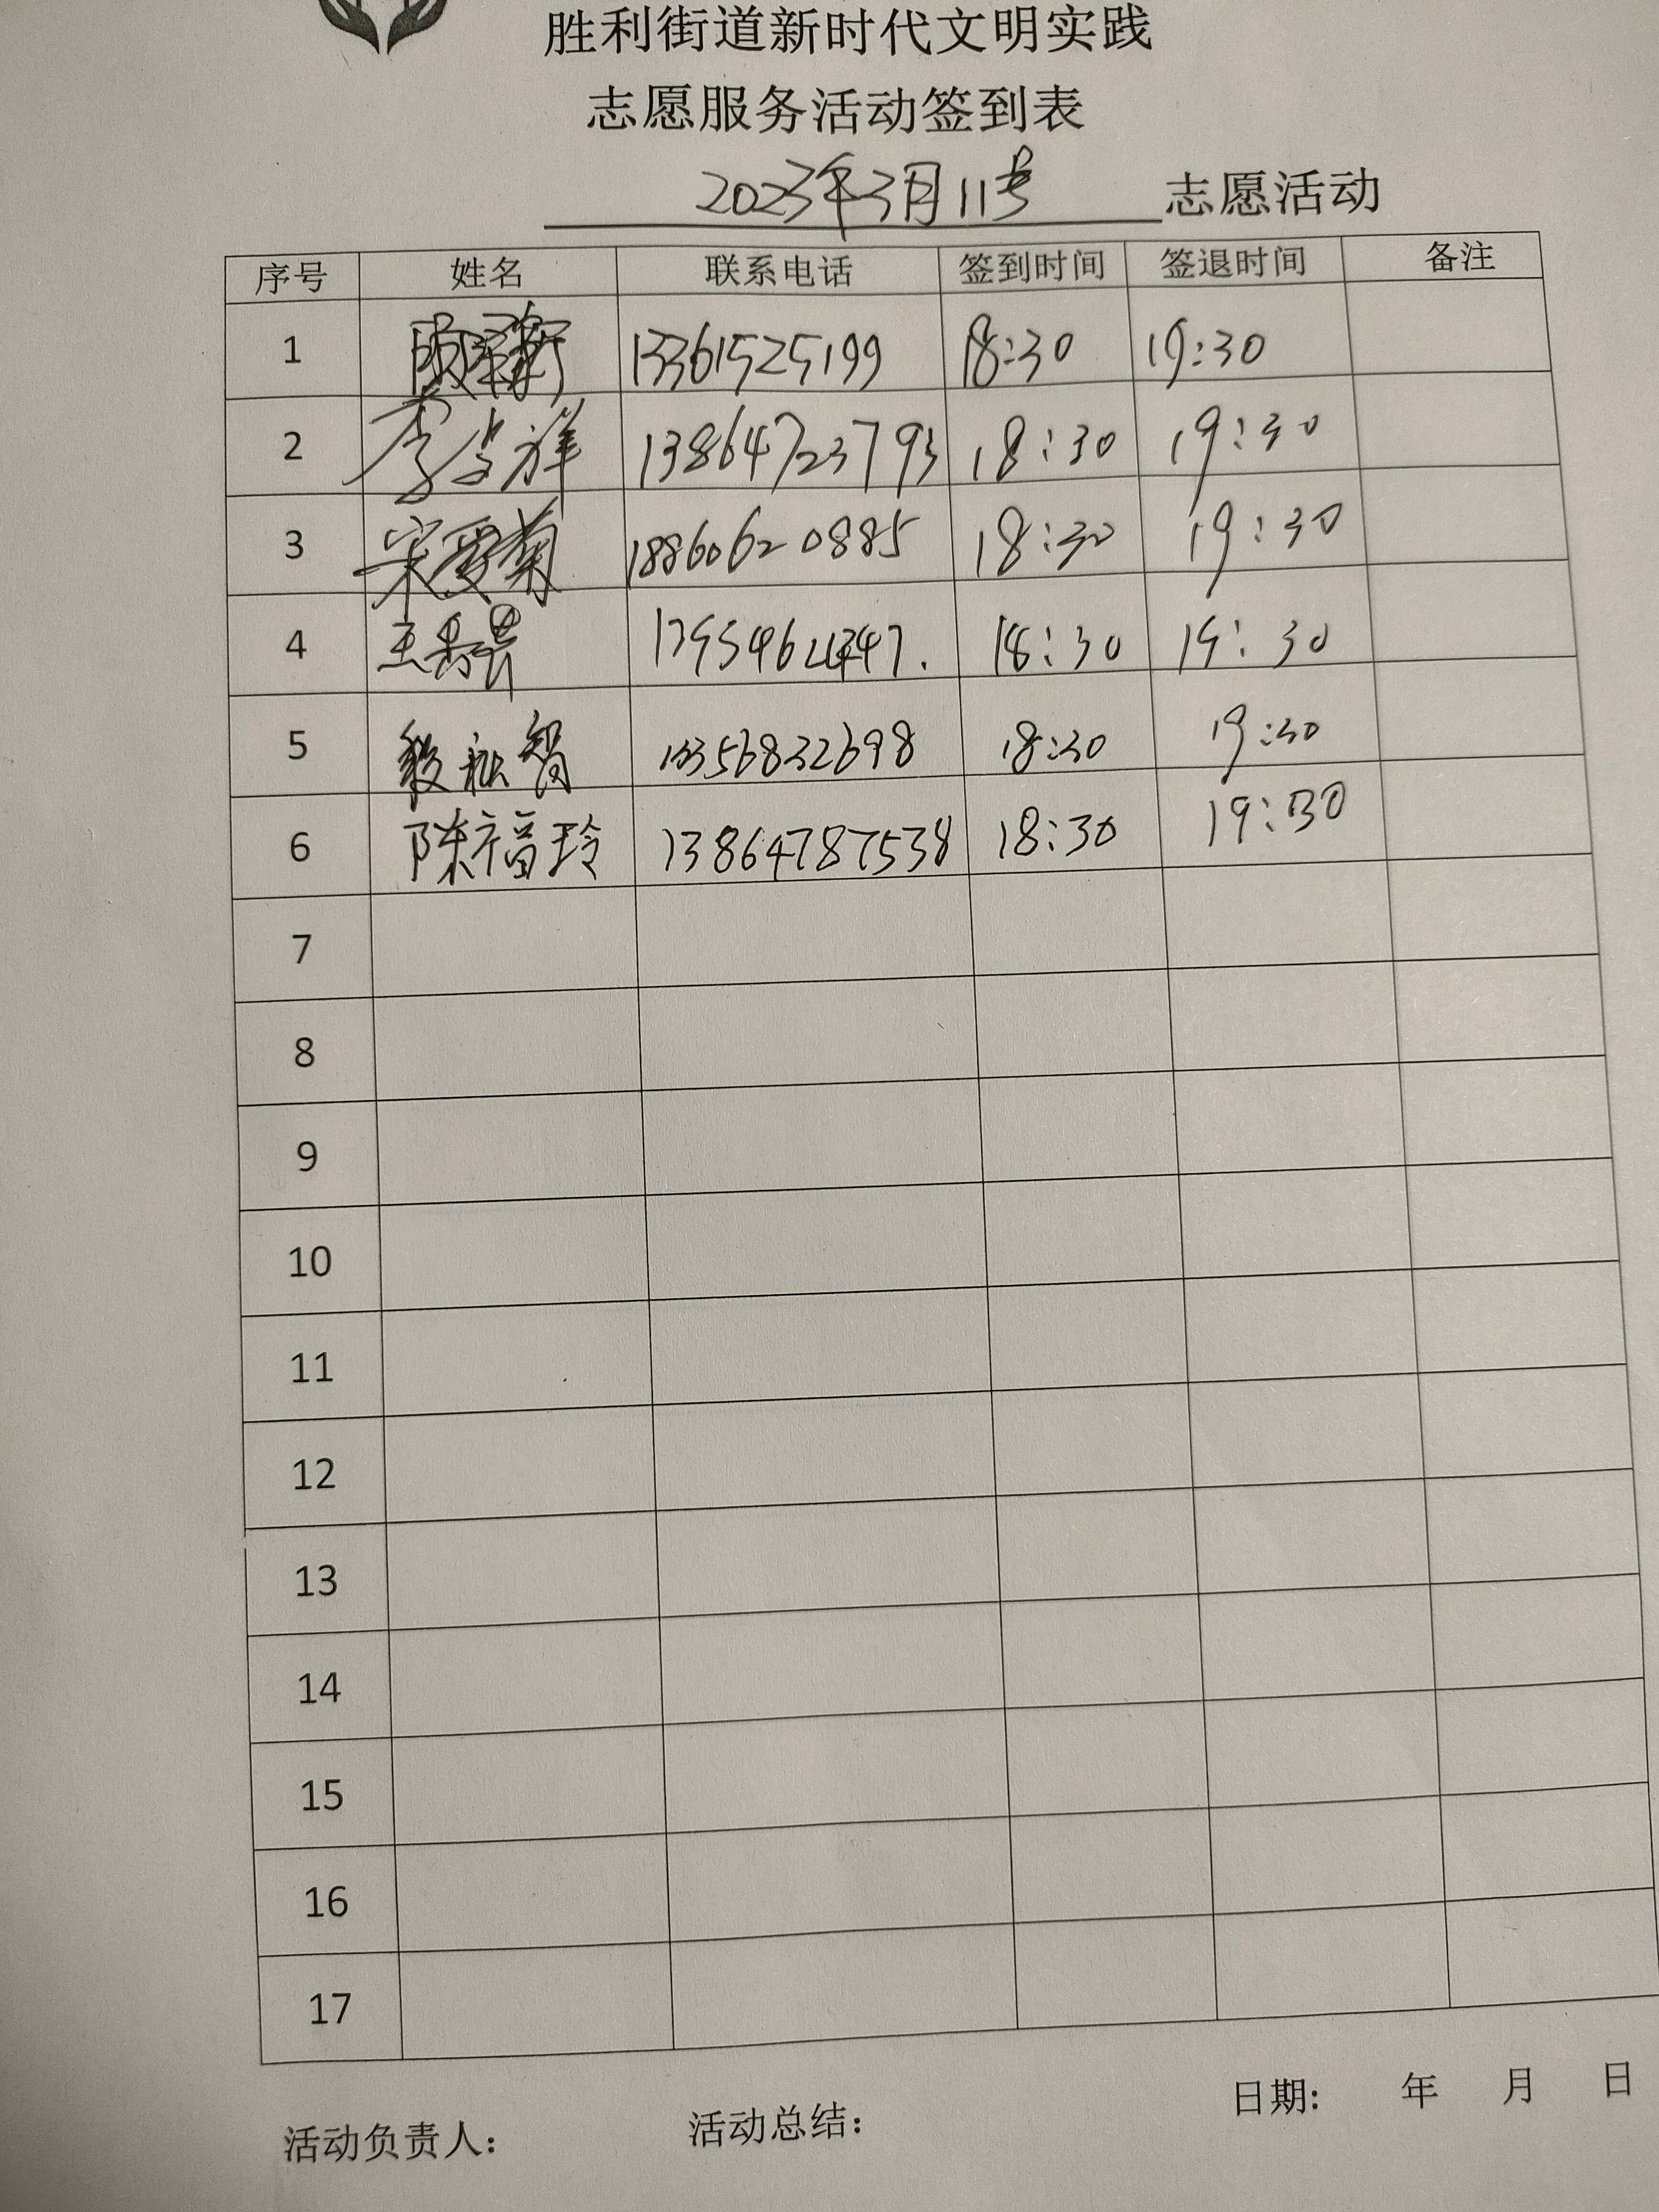 胜利街道新时代文明实践
志愿服务活动签到表
2023年3月11号 志愿活动
序号 姓名 联系电话 签到时间 签退时间 备注
1 13361525199 18:30 19:30
2 李 祥 13864723793 18:30 19:30
3 宋爱菊 18860620885 18:30 19:30
4 王 18:30 19:30
5 13356832698 18:30 19:30
6 陈福玲 13864787538 18:30 19:30
7
8
9
10
11
12
13
14
15
16
17
活动负责人: 活动总结: 日期: 年 月 日